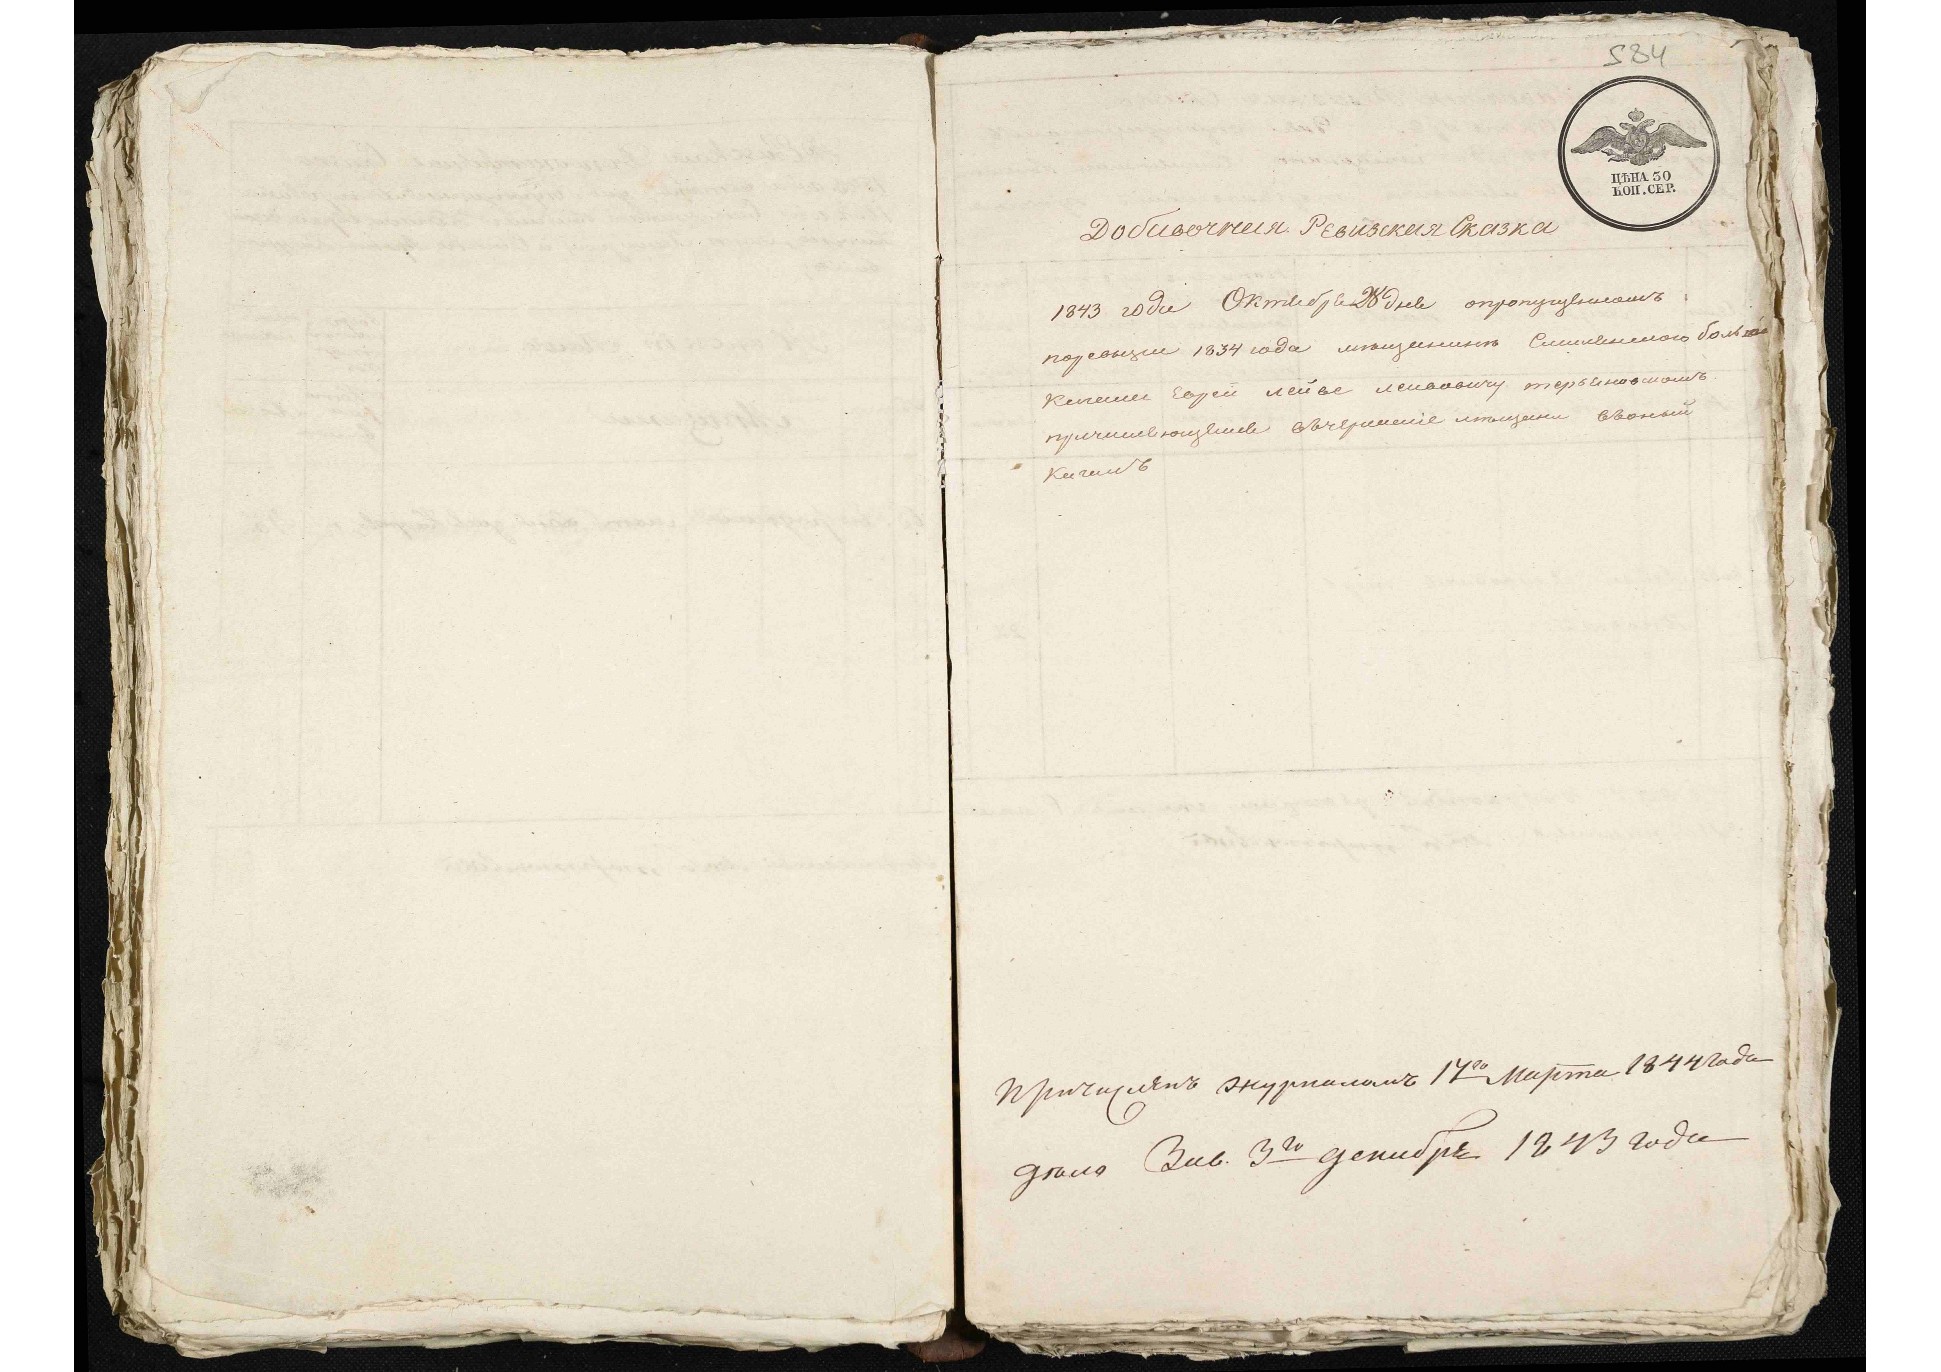 584
ЦѢНА 30
КОП. СЕР.
Добавочная Ревизская Сказка
1843 года Октября 28 дня опропущенномъ
поревизии 1834 года мѣщанинѣ Смилянского
Кагала Еврей Лейбѣ Лейбовичу Терьяновскомъ
причисляющемся въчеркаские мѣщане въоный
Кагалъ
Причисленъ журналомъ 17го Марта 1844 года
дѣло Зав. 3го декабря 1843 года